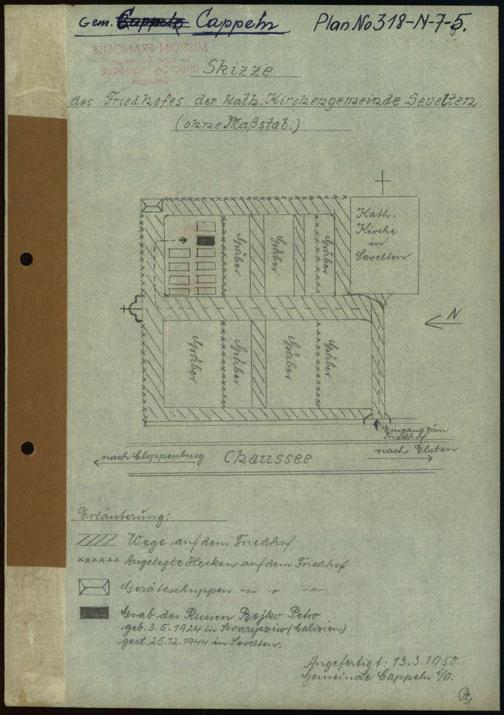 Gem. Cappeln Cappeln Plan No 318-N-7-5.
MISSION FRANÇAISE
Skizze
des Friedhofes der kath. Kirchengemeinde Sevelten.
(ohne Maßstab.)
Kath.
Kirche
in
Sevelten
Gräber Gräber Gräber
N
Gräber Gräber Gräber Gräber
Eingang zum
Friedhof
nach Cloppenburg Chaussee nach Elsten
Erläuterung:
Wege auf dem Friedhof
Angelegte Hecken auf dem Friedhof
Geräteschuppen " " "
Grab des Russen Bojko Petro
geb. 3.5.1924 in (Galizien)
gest. 25.12.1944 in Sevelten.
Angefertigt: 13.3.1950.
Gemeinde Cappeln i/O.